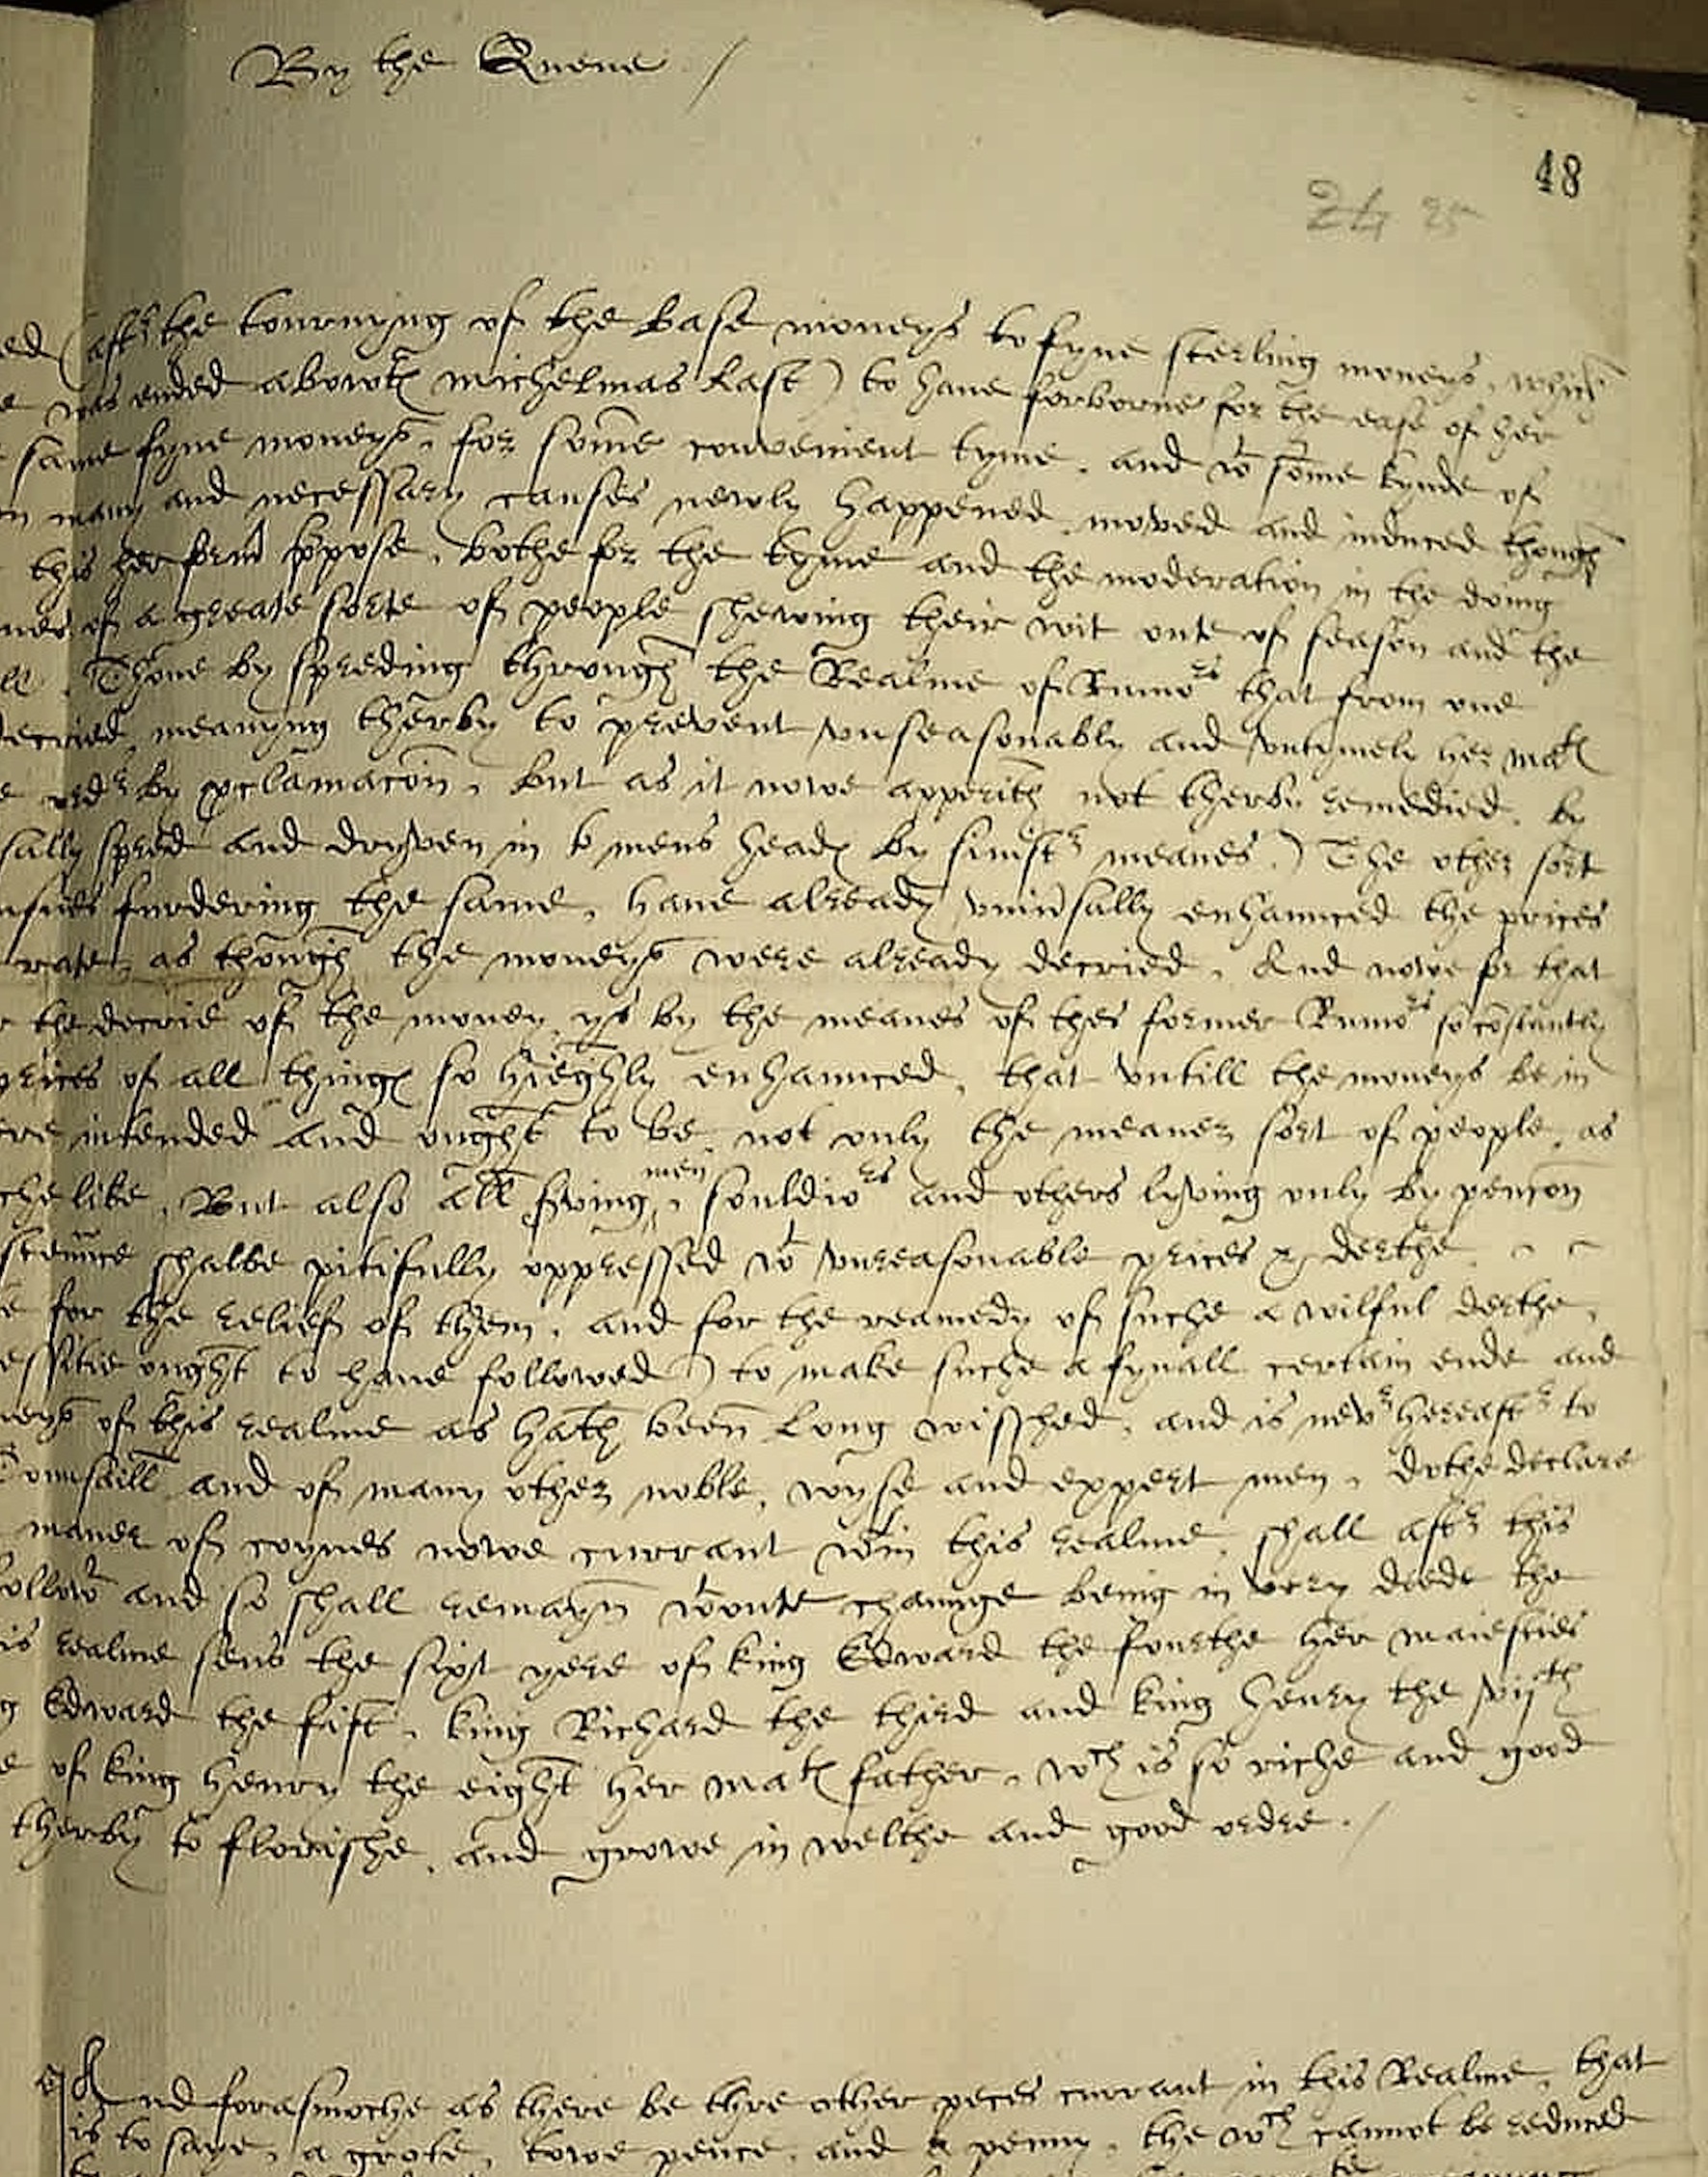 By the Quene /
48
24 25
ed (aftr the tourning of the base moneys to fyne sterling moneys, which
e was ended abowt michelmas last) to have forborne for the ease of her
same fyne moneys, for some convenient tyme, and wt some kynde of
n many and necessary causes newly happened, moved and induced though
this her form ppose, bothe for the tyme and the moderation in the doing
nes of a greate sorte of people shewing their wit oute of season and the
ll. Thone by spreding through the Realme of Rumors that from one
decried, meanyng therby to prevent vnseasonably and vntymely her mate
e ordr by pclamacon, but as it nowe apperith not therby remedied, by
sally spred and dryven in to mens heades by sinistr meanes.) The other sort
furdering the same, have already vniusally enhaunced the prices
rate, as though the moneys were already decried. And nowe for that
r the decrie of the money ys by the meanes of thes former Rumors so constantly
prices of all thinges so hieghly enhaunced, that vntill the moneys be in
ere intended and ought to be, not only the meaner sort of people, as
che like, But also all sving men, souldiors and others lyving only by pencon
stennce shalbe pitifully oppressed wt vnreasonable prices & derthe
e for the relief of them, and for the reamedy of suche a wilful derthe,
essitie ought to have followed) to make suche a fynall certain ende and
neys of this realme as hath been long wisshed, and is nevr hereaftr to
Counsaill and of many other noble, wyse and expert men, dothe declare
maner of coynes nowe currant wtin this realme, shall aftr this
followe and so shall remayn wtoute chaunge being in very deede the
is realme sens the sixt yere of king Edward the fourthe her maiesties
g Edward the fift, king Richard the third and king Henry the vijth
e of king Henry the eight her mate father, wch is so riche and good
therby to florishe, and growe in welthe and good ordre. /
And forasmoche as there be thre other peces currant in this Realme, that
is to saye, a grote, towe pence, and a penny, the wch cannot be reduced